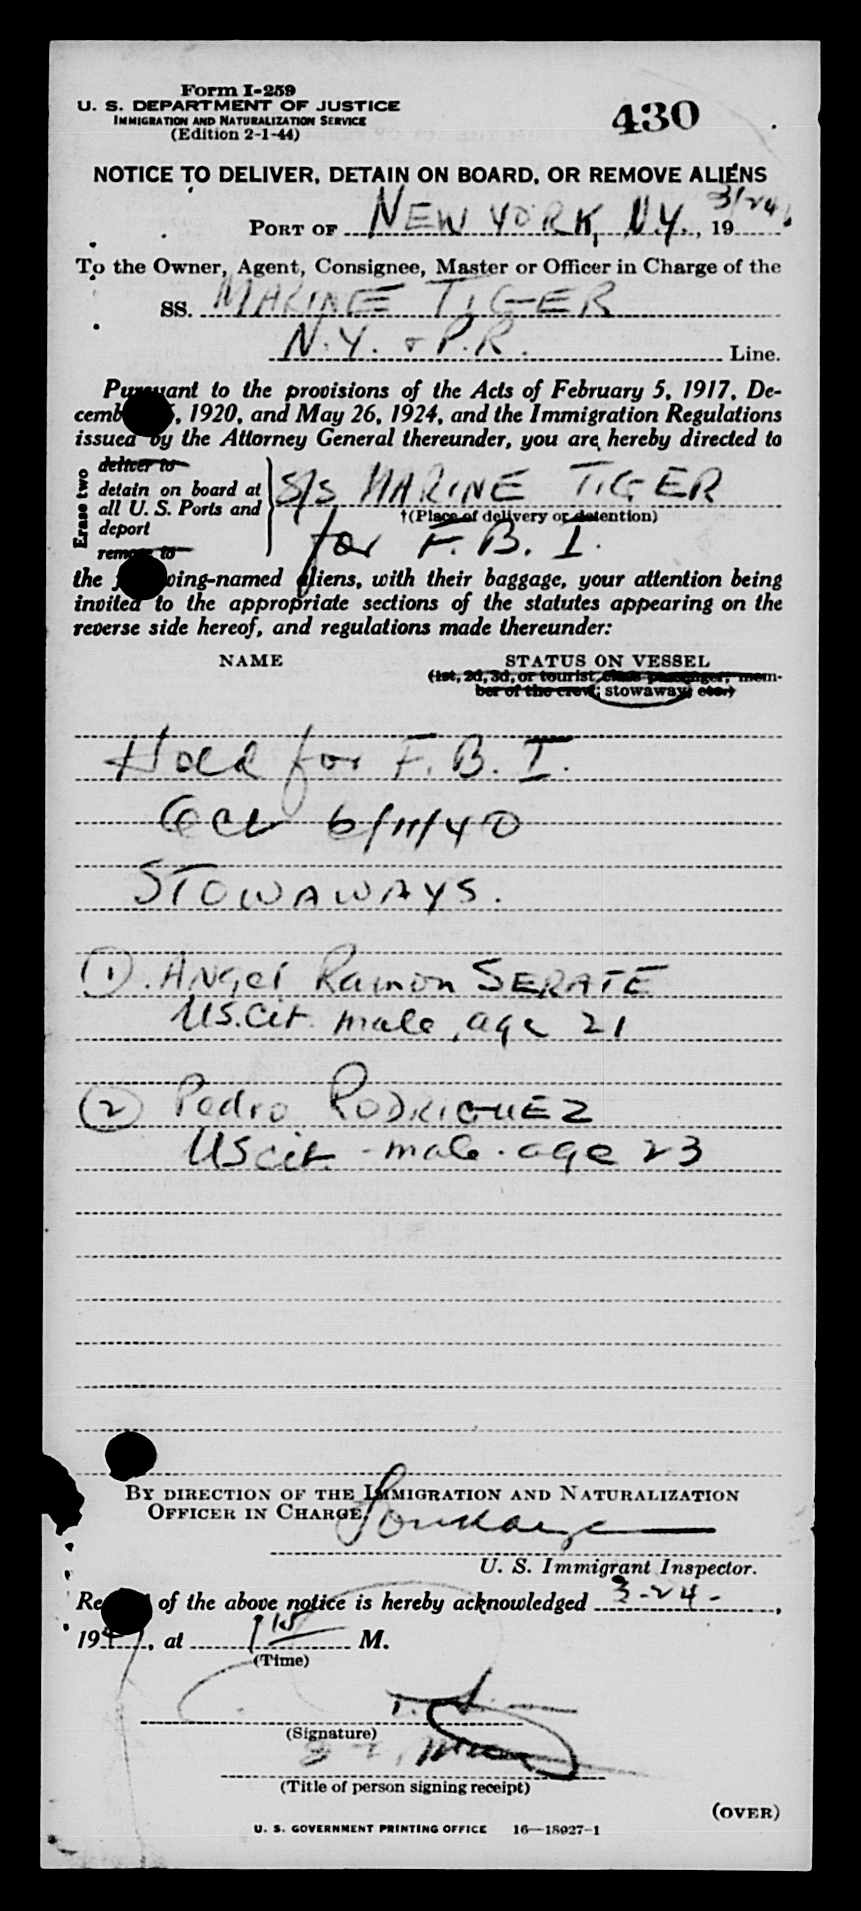 Form I-259
U. S. DEPARTMENT OF JUSTICE
IMMIGRATION AND NATURALIZATION SERVICE
(Edition 2-1-44)
430
NOTICE TO DELIVER, DETAIN ON BOARD, OR REMOVE ALIENS
PORT OF NEW YORK, N.Y. 3/24, 19
To the Owner, Agent, Consignee, Master or Officer in Charge of the
SS. MARINE TIGER
N.Y. & P.R. Line.
Pursuant to the provisions of the Acts of February 5, 1917, De-
cemb 5, 1920, and May 26, 1924, and the Immigration Regulations
issued by the Attorney General thereunder, you are hereby directed to
Erase two
deliver to
detain on board at
all U. S. Ports and
deport
remove to
S/S MARINE TIGER
†(Place of delivery or detention)
for F.B.I.
the wing-named aliens, with their baggage, your attention being
invited to the appropriate sections of the statutes appearing on the
reverse side hereof, and regulations made thereunder:
NAME STATUS ON VESSEL
(1st, 2d, 3d, or tourist class passenger; mem-
ber of the crew; stowaway; etc.)
Hold for F.B.I.
6/11/40
STOWAWAYS.
(1). Angel Ramon SERATE
US.Cit. male, age 21
(2) Pedro RODRIGUEZ
US cit. - male - age 23
BY DIRECTION OF THE IMMIGRATION AND NATURALIZATION
OFFICER IN CHARGE,
U. S. Immigrant Inspector.
Re of the above notice is hereby acknowledged 3-24-,
194, at 1 15 M.
(Time)
(Signature)
(Title of person signing receipt)
(OVER)
U. S. GOVERNMENT PRINTING OFFICE 16—18927-1